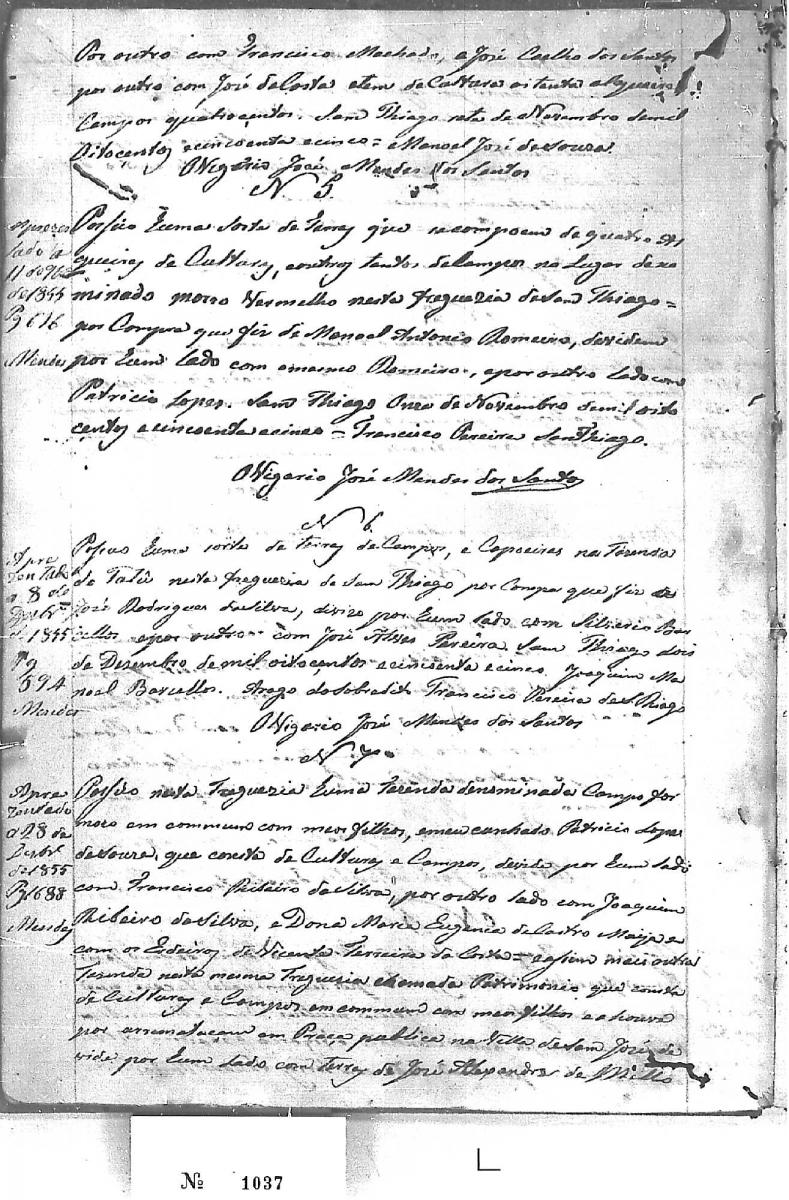 Por outro com Francisco Machado, e José Coelho dos Santos
por outro com José da Costa etem de Cultura oitenta alqueires
Campos quatrocentos. Sam Thiago sete de Novembro demil
Oitocentos ecincoenta ecinco = Manoel José de Souza.
OVigario José Mendes dos Santos
N 5.
Apresen
tado a
11 de 9br.
de 1855
Pg 616
Mendes
Possuo Euma sorte de terras que secompoem de quatro Al
queires de Culturas, eoutros tantos de Campos no Lugar deno
minado morro Vermelho nesta freguezia de Sam Thiago =
por Compra que fiz de Manoel Antonio Romeiro, devidem
por Eum lado com omesmo Romeiro, epor outro lado com
Patricio Lopes. Sam Thiago Onze de Novembro demil oito
centos ecincoenta ecinco = Francisco Pereira SanThiago.
OVigario José Mendes dos Santos
N 6.
Apre
zentado
a 8 de
Dezbr.
de 1855
Pg
694
Mendes
Possuo Euma sorte de terras de Campos, e Capoeiras na Fazenda
do Tatú nesta freguezia de Sam Thiago por Compra que fiz de
José Rodrigues da Silva, divizo por Eum lado com Silverio Bar
cellos epor outro com José Alves Pereira. Sam Thiago dois
de Dezembro de mil oitocentos ecincoenta ecinco. Joaquim Ma
noel Barcellos. Arogo do sobredito Francisco Pereira de S. Thiago
OVigario José Mendes dos Santos
N 7.
Apre
zentado
a 28 de
Dezbr.
de 1855
Pg 1688
Mendes
Possuo nesta Freguezia Euma Fazenda denominada Campo for
mozo em commum com meus filhos, emeu cunhado Patricio Lopes
de Souza, que consta de Culturas e Campos, devide por Eum lado
com Francisco Ribeiro da Silva, por outro lado com Joaquim
Ribeiro da Silva, e Dona Maria Eugenia de Castro
com os Erdeiros de Vicente Ferreira da Costa = eassim mais outra
Fazenda nesta mesma Freguezia chamada Patrimonio que consta
de Culturas e Campos, em commum com meus filhos e a houve
por arrematacam em Praça publica na Villa de Sam José de
vide por Eum lado com terras de José Alexandre de Mello
№ 1037